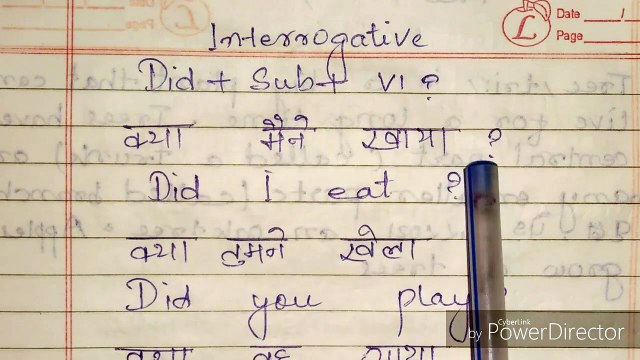 Date __/
Page ___
Interrogative
Did + Sub + V1 ?
क्या मैने खाया ?
Did I eat ?
क्या तुमने खेला
Did you play?
क्या वह गाया
CyberLink
by PowerDirector